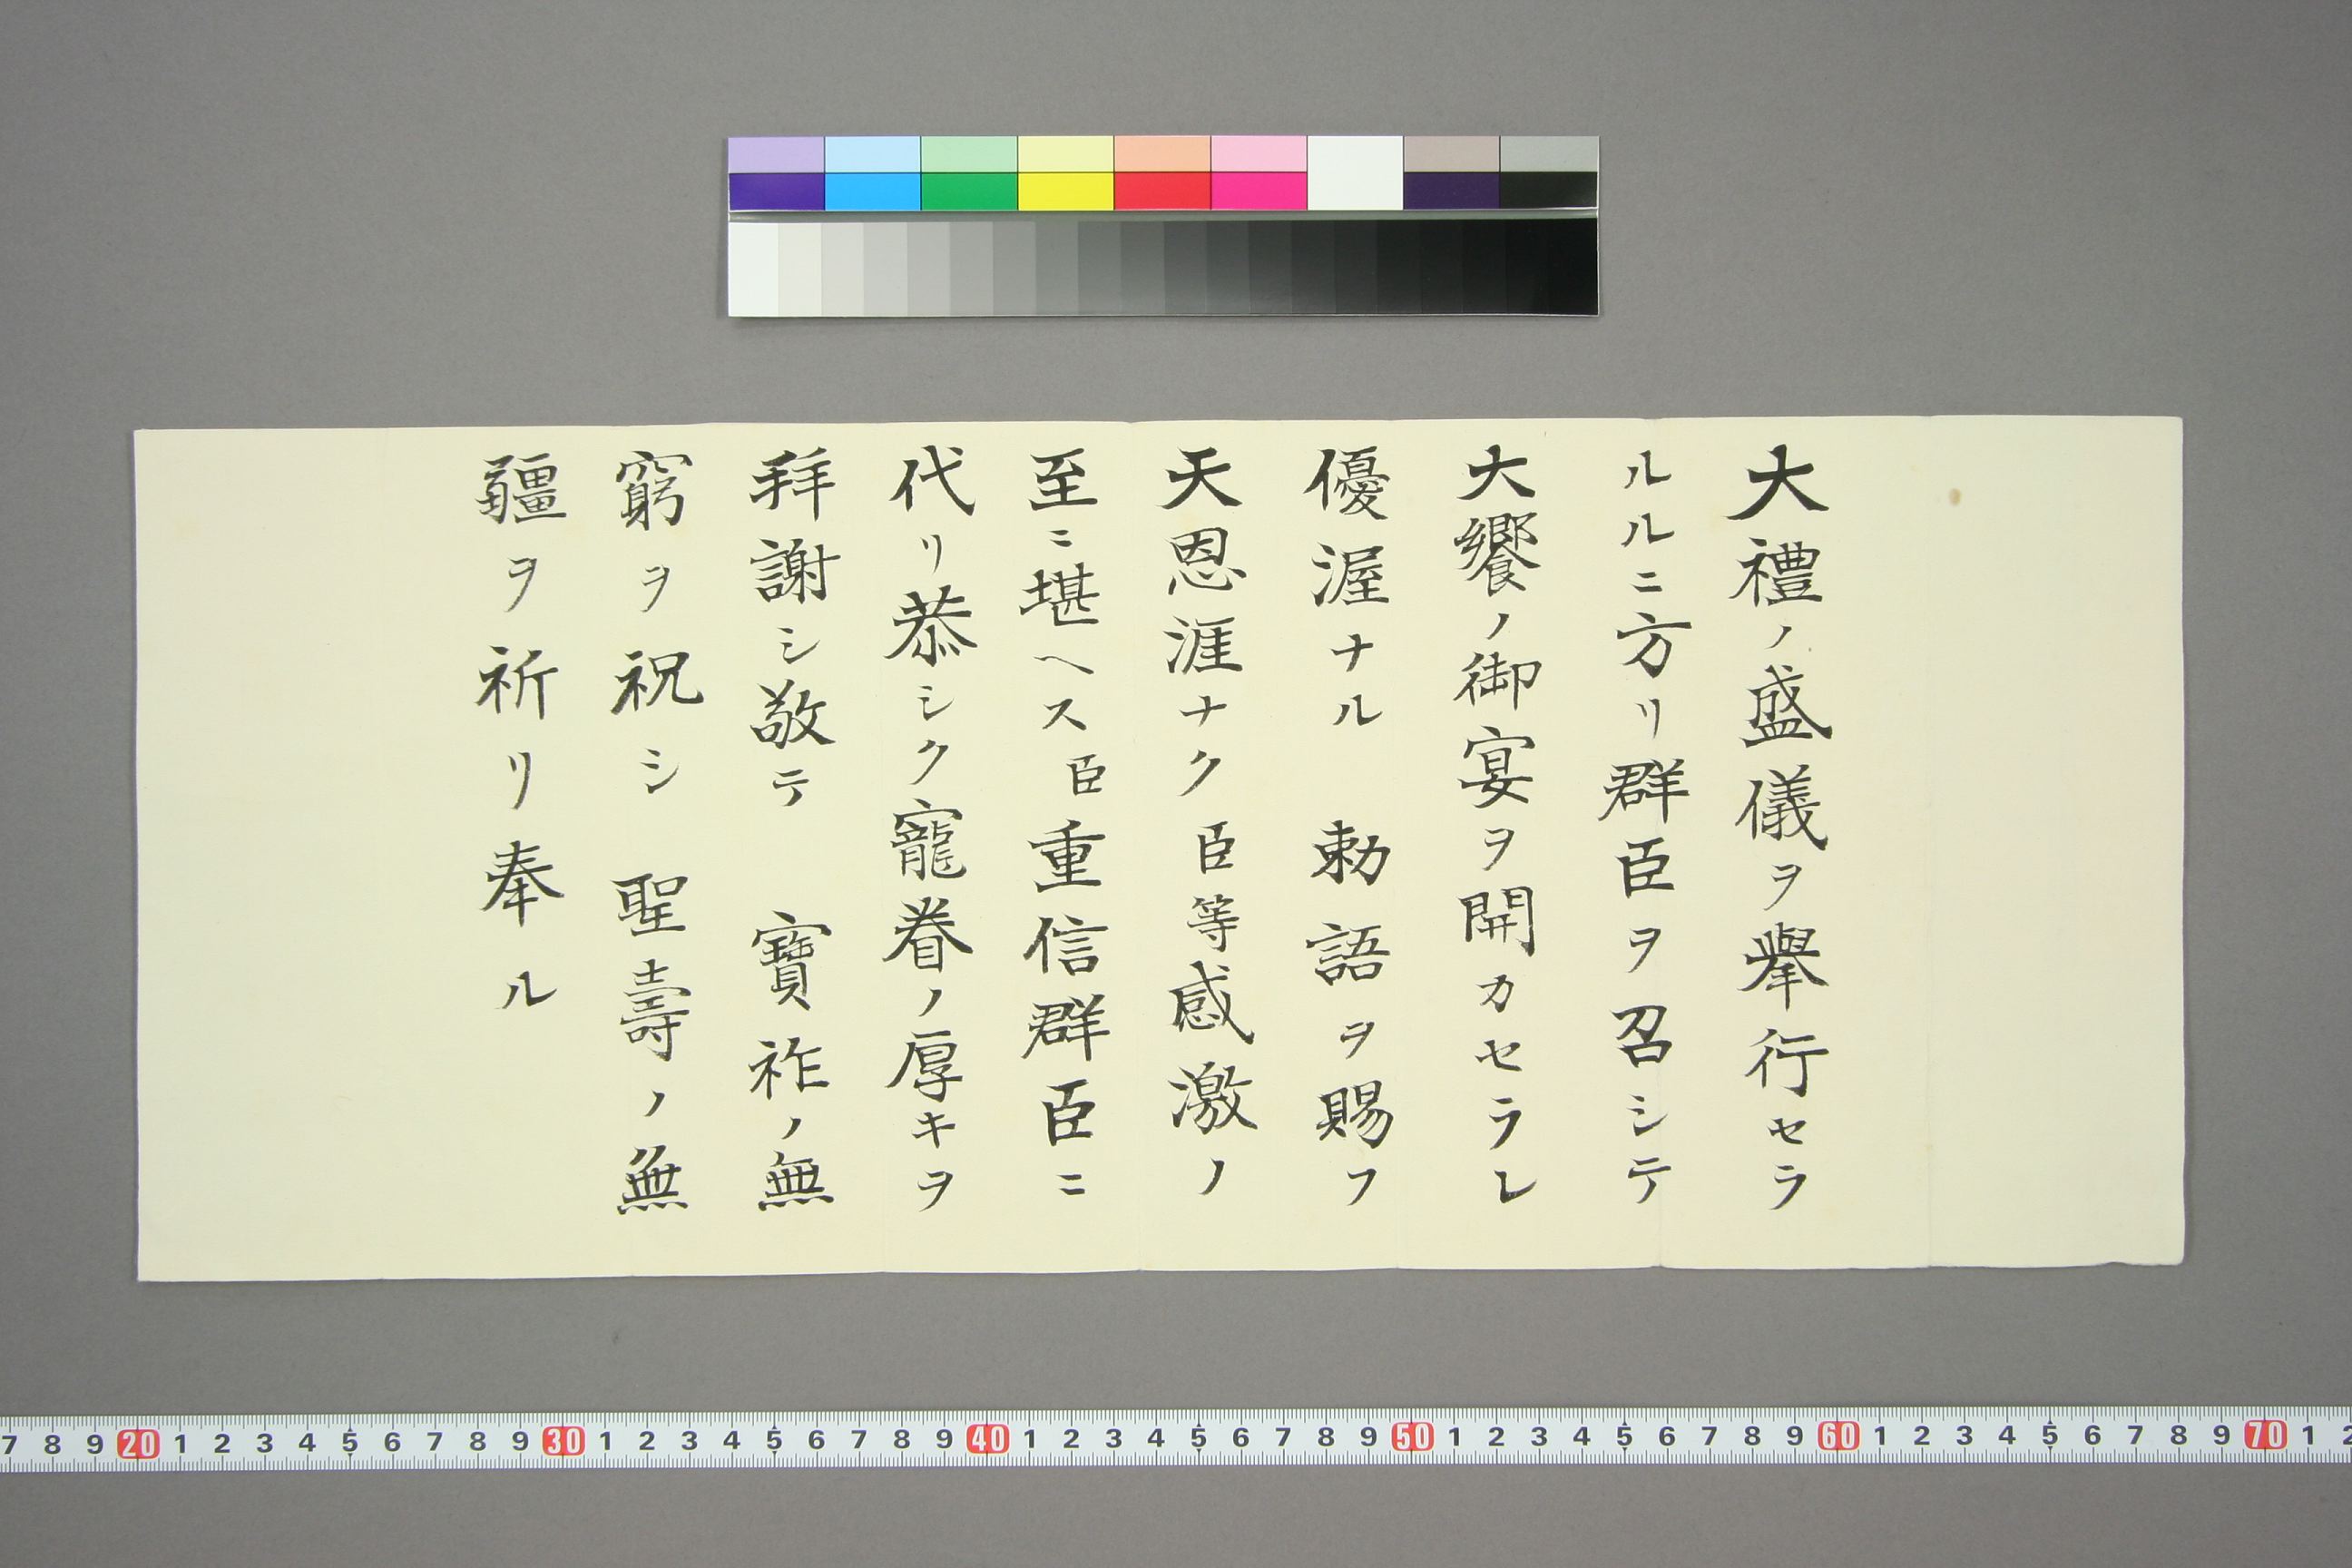 大禮ノ盛儀ヲ擧行セラ
ルルニ方リ群臣ヲ召シテ
大饗ノ御宴ヲ開カセラレ
優渥ナル　勅語ヲ賜フ
天恩涯ナク臣等感激ノ
至ニ堪ヘス臣重信群臣ニ
代リ恭シク寵眷ノ厚キヲ
拜謝シ敬テ　寶祚ノ無
窮ヲ祝シ　聖壽ノ無
疆ヲ祈リ奉ル
7 8 9 20 1 2 3 4 5 6 7 8 9 30 1 2 3 4 5 6 7 8 9 40 1 2 3 4 5 6 7 8 9 50 1 2 3 4 5 6 7 8 9 60 1 2 3 4 5 6 7 8 9 70 1 2